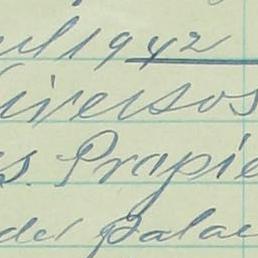 ul 1942
iversos
s. Propie
del palac